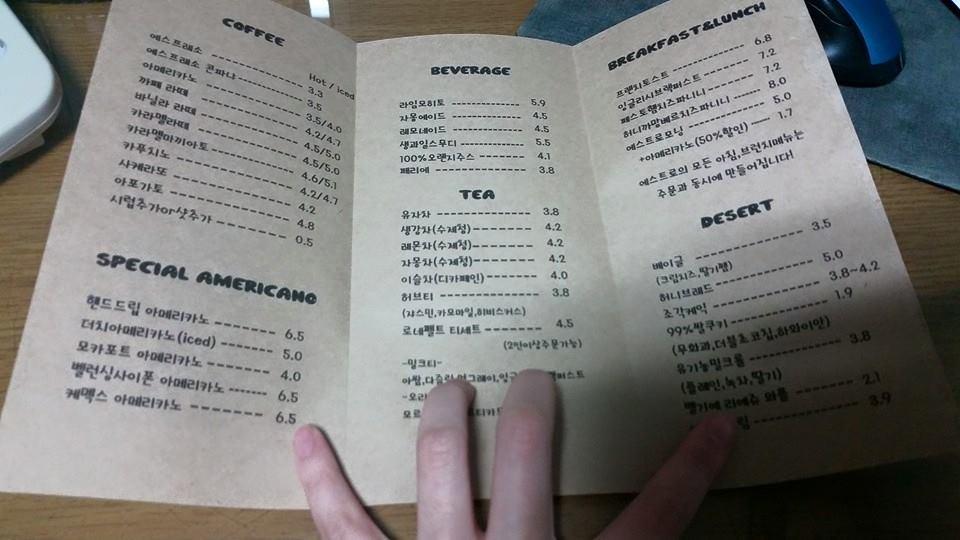 COFFEE
Hot / iced
에스프레소 3.3
에스프레소 콘파나 3.5
아메리카노 3.5/4.0
까페 라떼 4.2/4.7
바닐라 라떼 4.5/5.0
카라멜라떼 4.5/5.0
카라멜마끼아토 4.6/5.1
카푸치노 4.2/4.7
사케라또 4.2
아포가토 4.8
시럽추가or샷추가 0.5
SPECIAL AMERICANO
핸드드립 아메리카노 6.5
더치아메리카노(iced) 5.0
모카포트 아메리카노 4.0
벨런싱사이폰 아메리카노 6.5
케멕스 아메리카노 6.5
BEVERAGE
라임모히토 5.9
자몽에이드 4.5
레모네이드 4.5
생과일스무디 5.5
100%오랜지주스 4.1
페리에 3.8
TEA
유자차 3.8
생강차(수제청) 4.2
레몬차(수제청) 4.2
자몽차(수제청) 4.2
이슬차(디카페인) 4.0
허브티 3.8
(쟈스민,카모마일,히비스커스)
로네펠트 티세트 4.5
(2인이상주문가능)
-밀크티-
아쌈,다즐링,얼그레이
BREAKFAST&LUNCH
프랜치토스트 6.8
잉글리시브랙퍼스트 7.2
페스토햄치즈파니니 7.2
허니까망베르치즈파니니 8.0
에스트로모닝 5.0
+아메리카노(50%할인) 1.7
에스트로의 모든 아침,브런치메뉴는
주문과 동시에 만들어집니다!
DESERT
베이글 3.5
(크림치즈,딸기쨈)
허니브레드 5.0
조각케익 3.8~4.2
99%쌀쿠키 1.9
(무화과,더블초코칩,하와이안)
유기농밀크롤 3.8
(플레인,녹차,딸기)
벨기에 리에쥬 와플 2.1
3.9